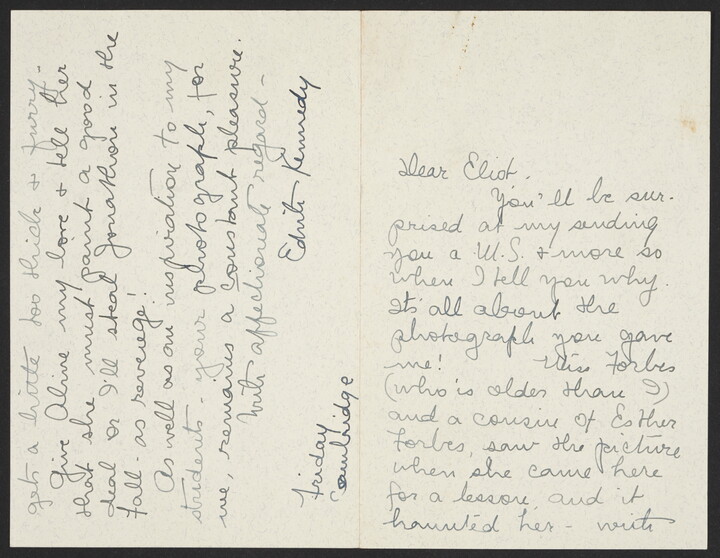 Dear Eliot.
You'll be sur-
prised at my sending
you a M.S. & more so
when I tell you why.
It's all about the
photograph you gave
me! Miss Forbes
(who is older than I)
and a cousin of Esther
Forbes, saw the picture
when she came here
for a lesson, and it
haunted her - with
gets a little too thick & furry-
Give Aline my love & tell her
that she must paint a good
deal or I'll steal Jonathon in the
fall - as revenge!
As well as an inspiration to my
students - your photograph, for
me, remains a constant pleasure.
With affectionate regard -
Edith Kennedy
Friday
Cambridge